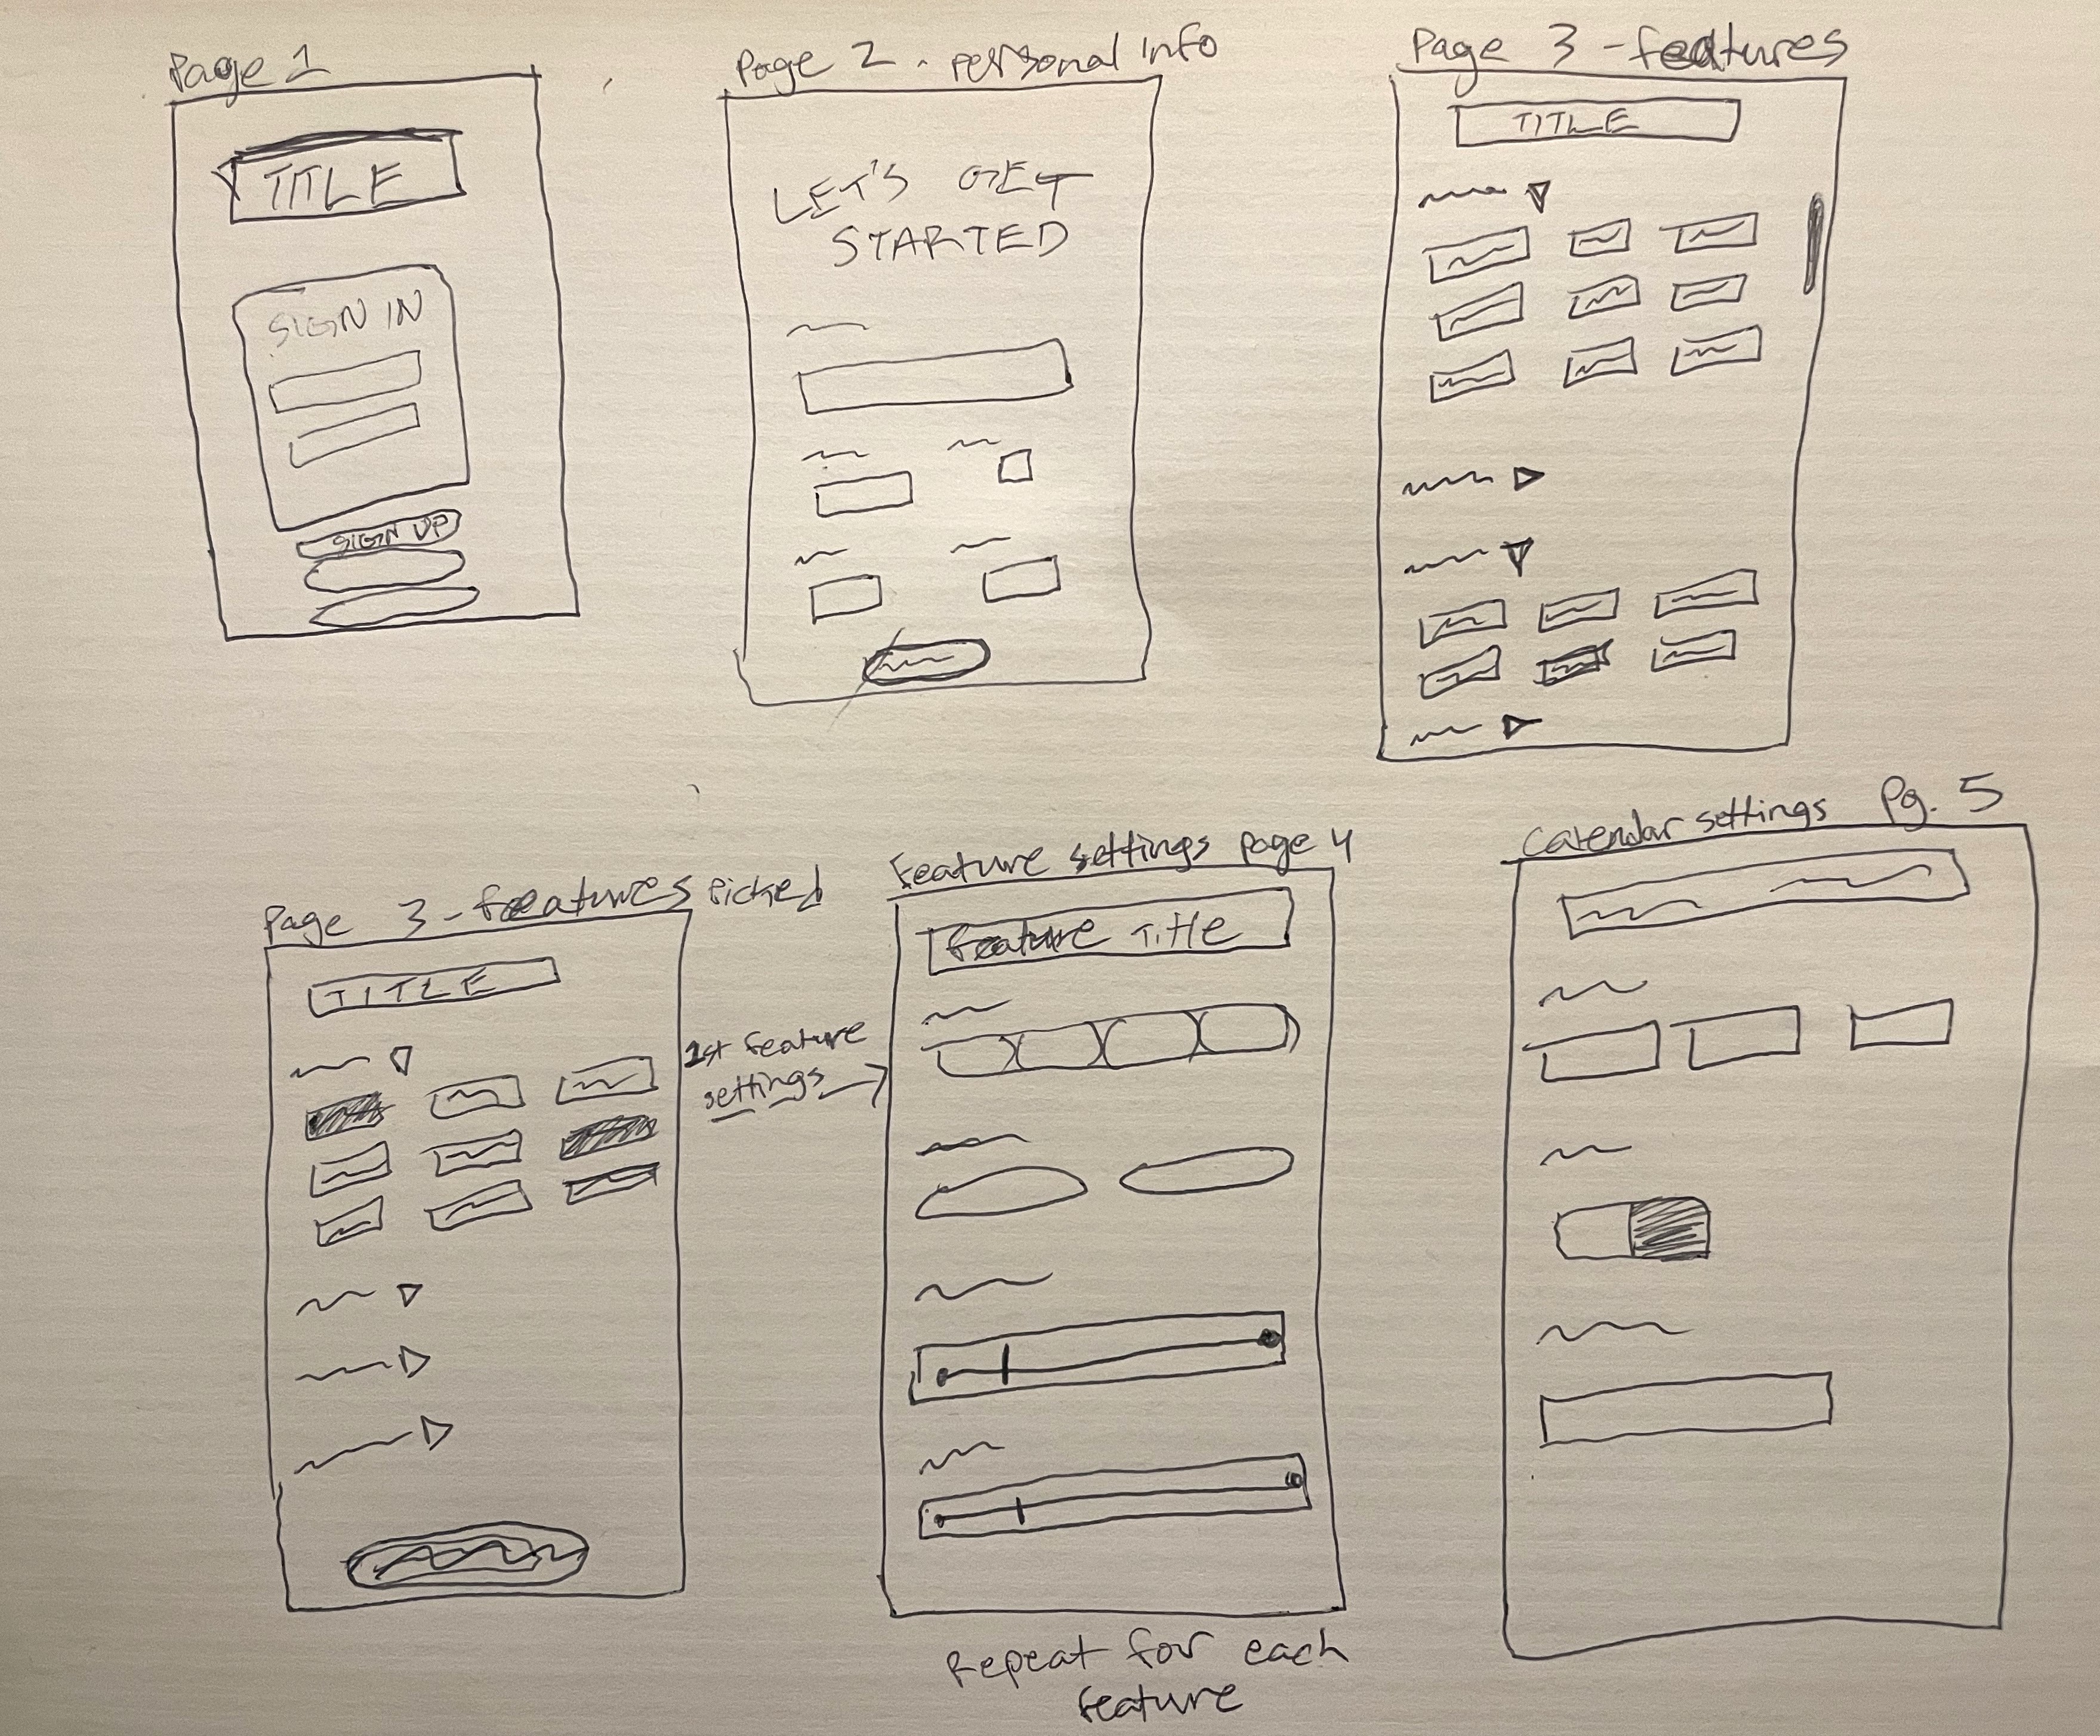 Page 1
TITLE
SIGN IN
SIGN UP
Page 2 - personal info
LET'S GET
STARTED
Page 3 - features
TITLE
Page 3 - features picked
TITLE
1st feature
settings
Feature settings page 4
Feature Title
Repeat for each
feature
Calendar settings Pg. 5